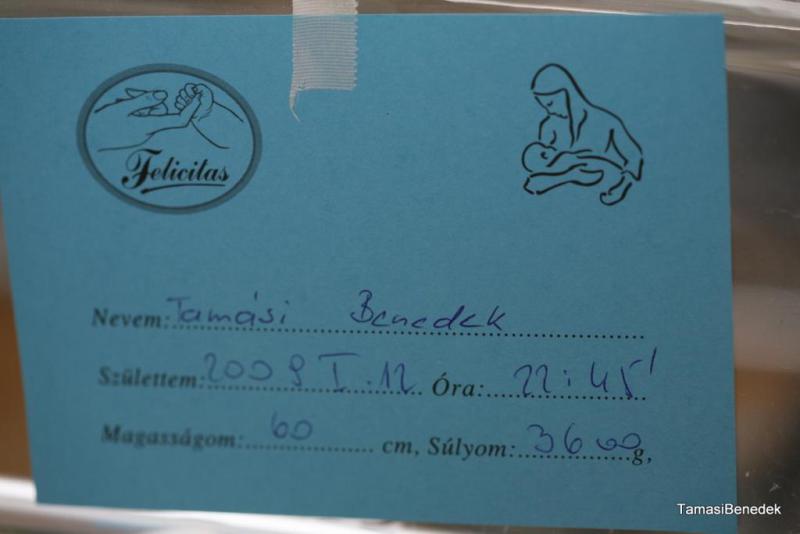 Felicitas
Nevem: Tamási Benedek
Születtem: 2009 I. 12 Óra: 22:45'
Magasságom: 60 cm, Súlyom: 3600 g,
TamasiBenedek